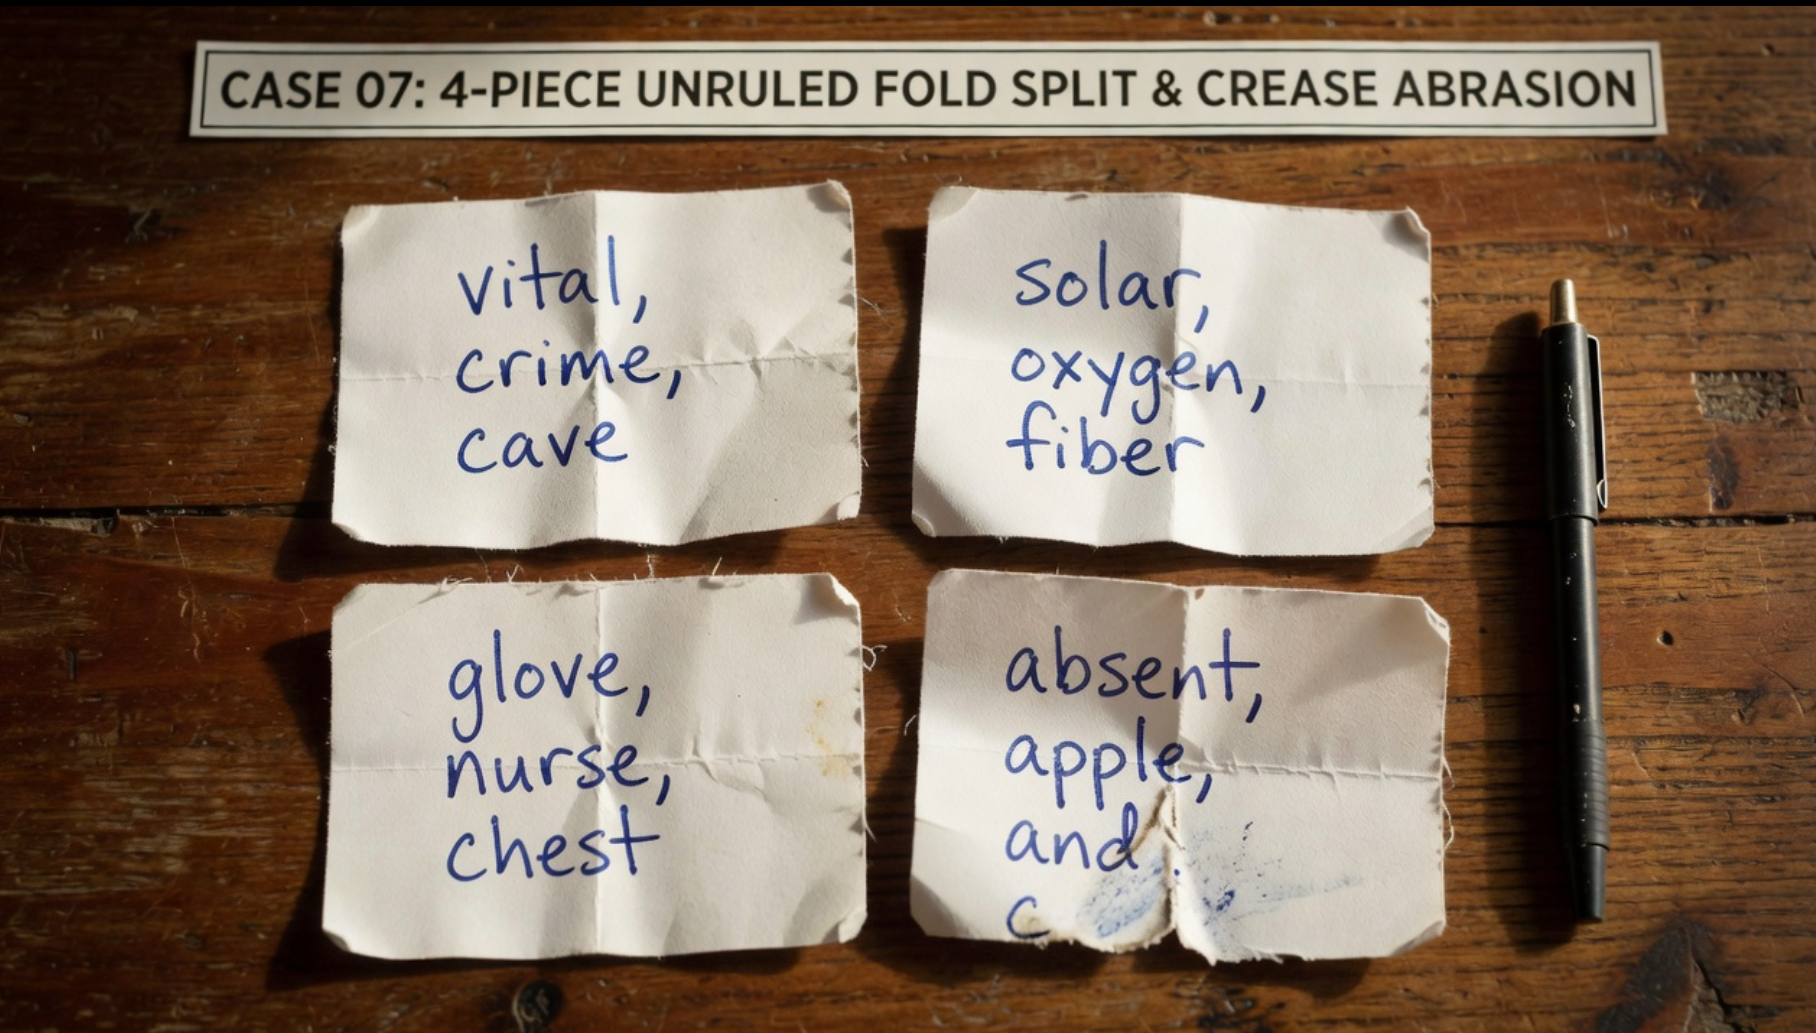 CASE 07: 4-PIECE UNRULED FOLD SPLIT & CREASE ABRASION
vital,
crime,
cave
solar,
oxygen,
fiber
glove,
nurse,
chest
absent,
apple,
and